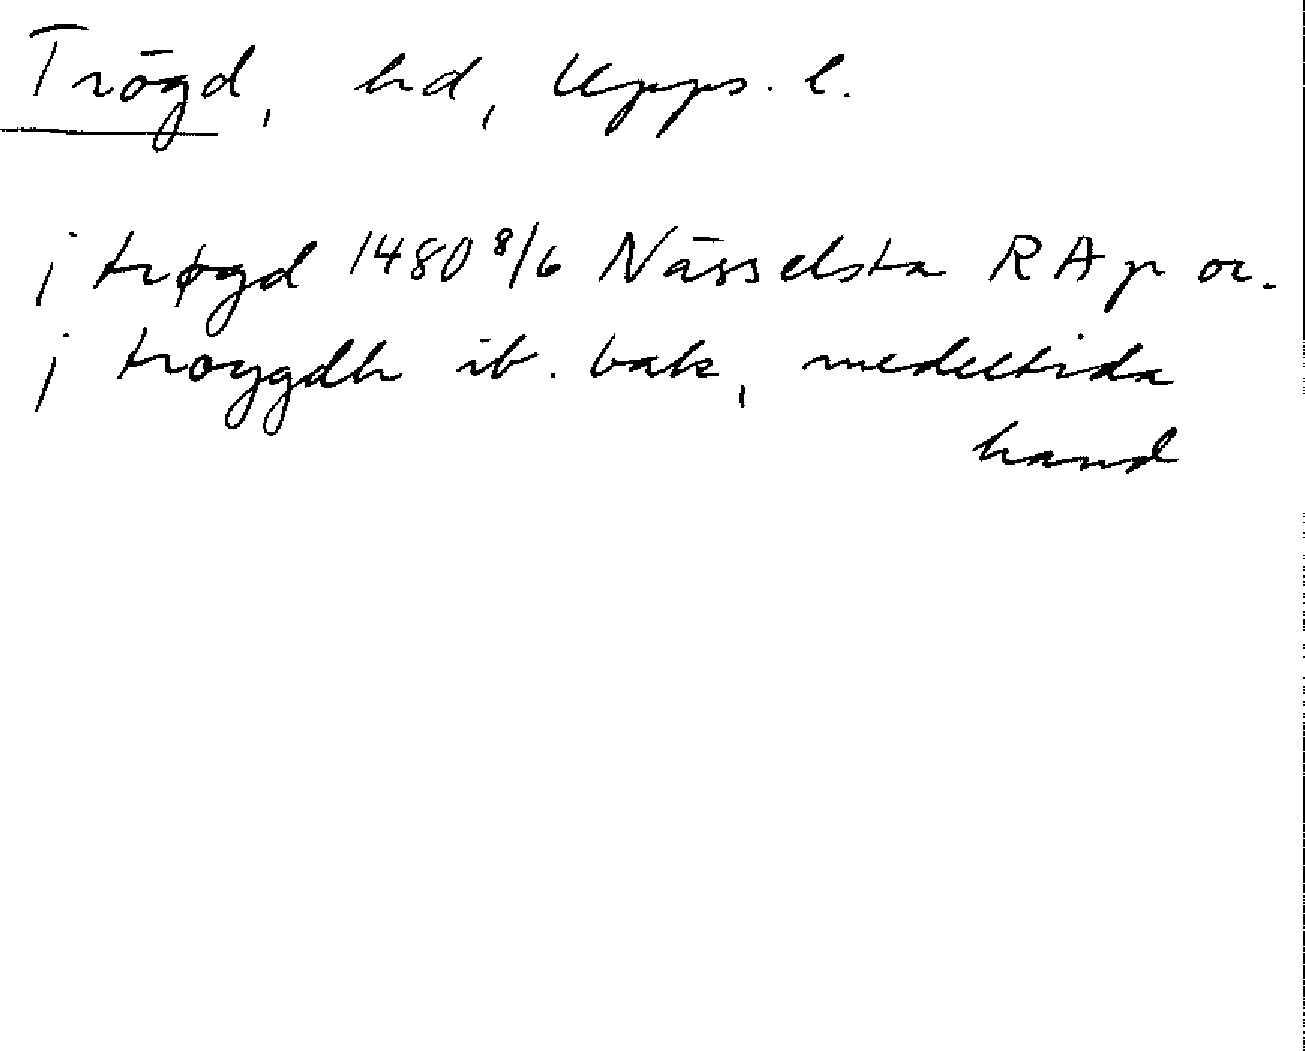 Trögd, hd, Upps. l.
j trøgd 1480 8/6 Nässelsta RAp or.
j troygdh ib. bak, medeltida
hand